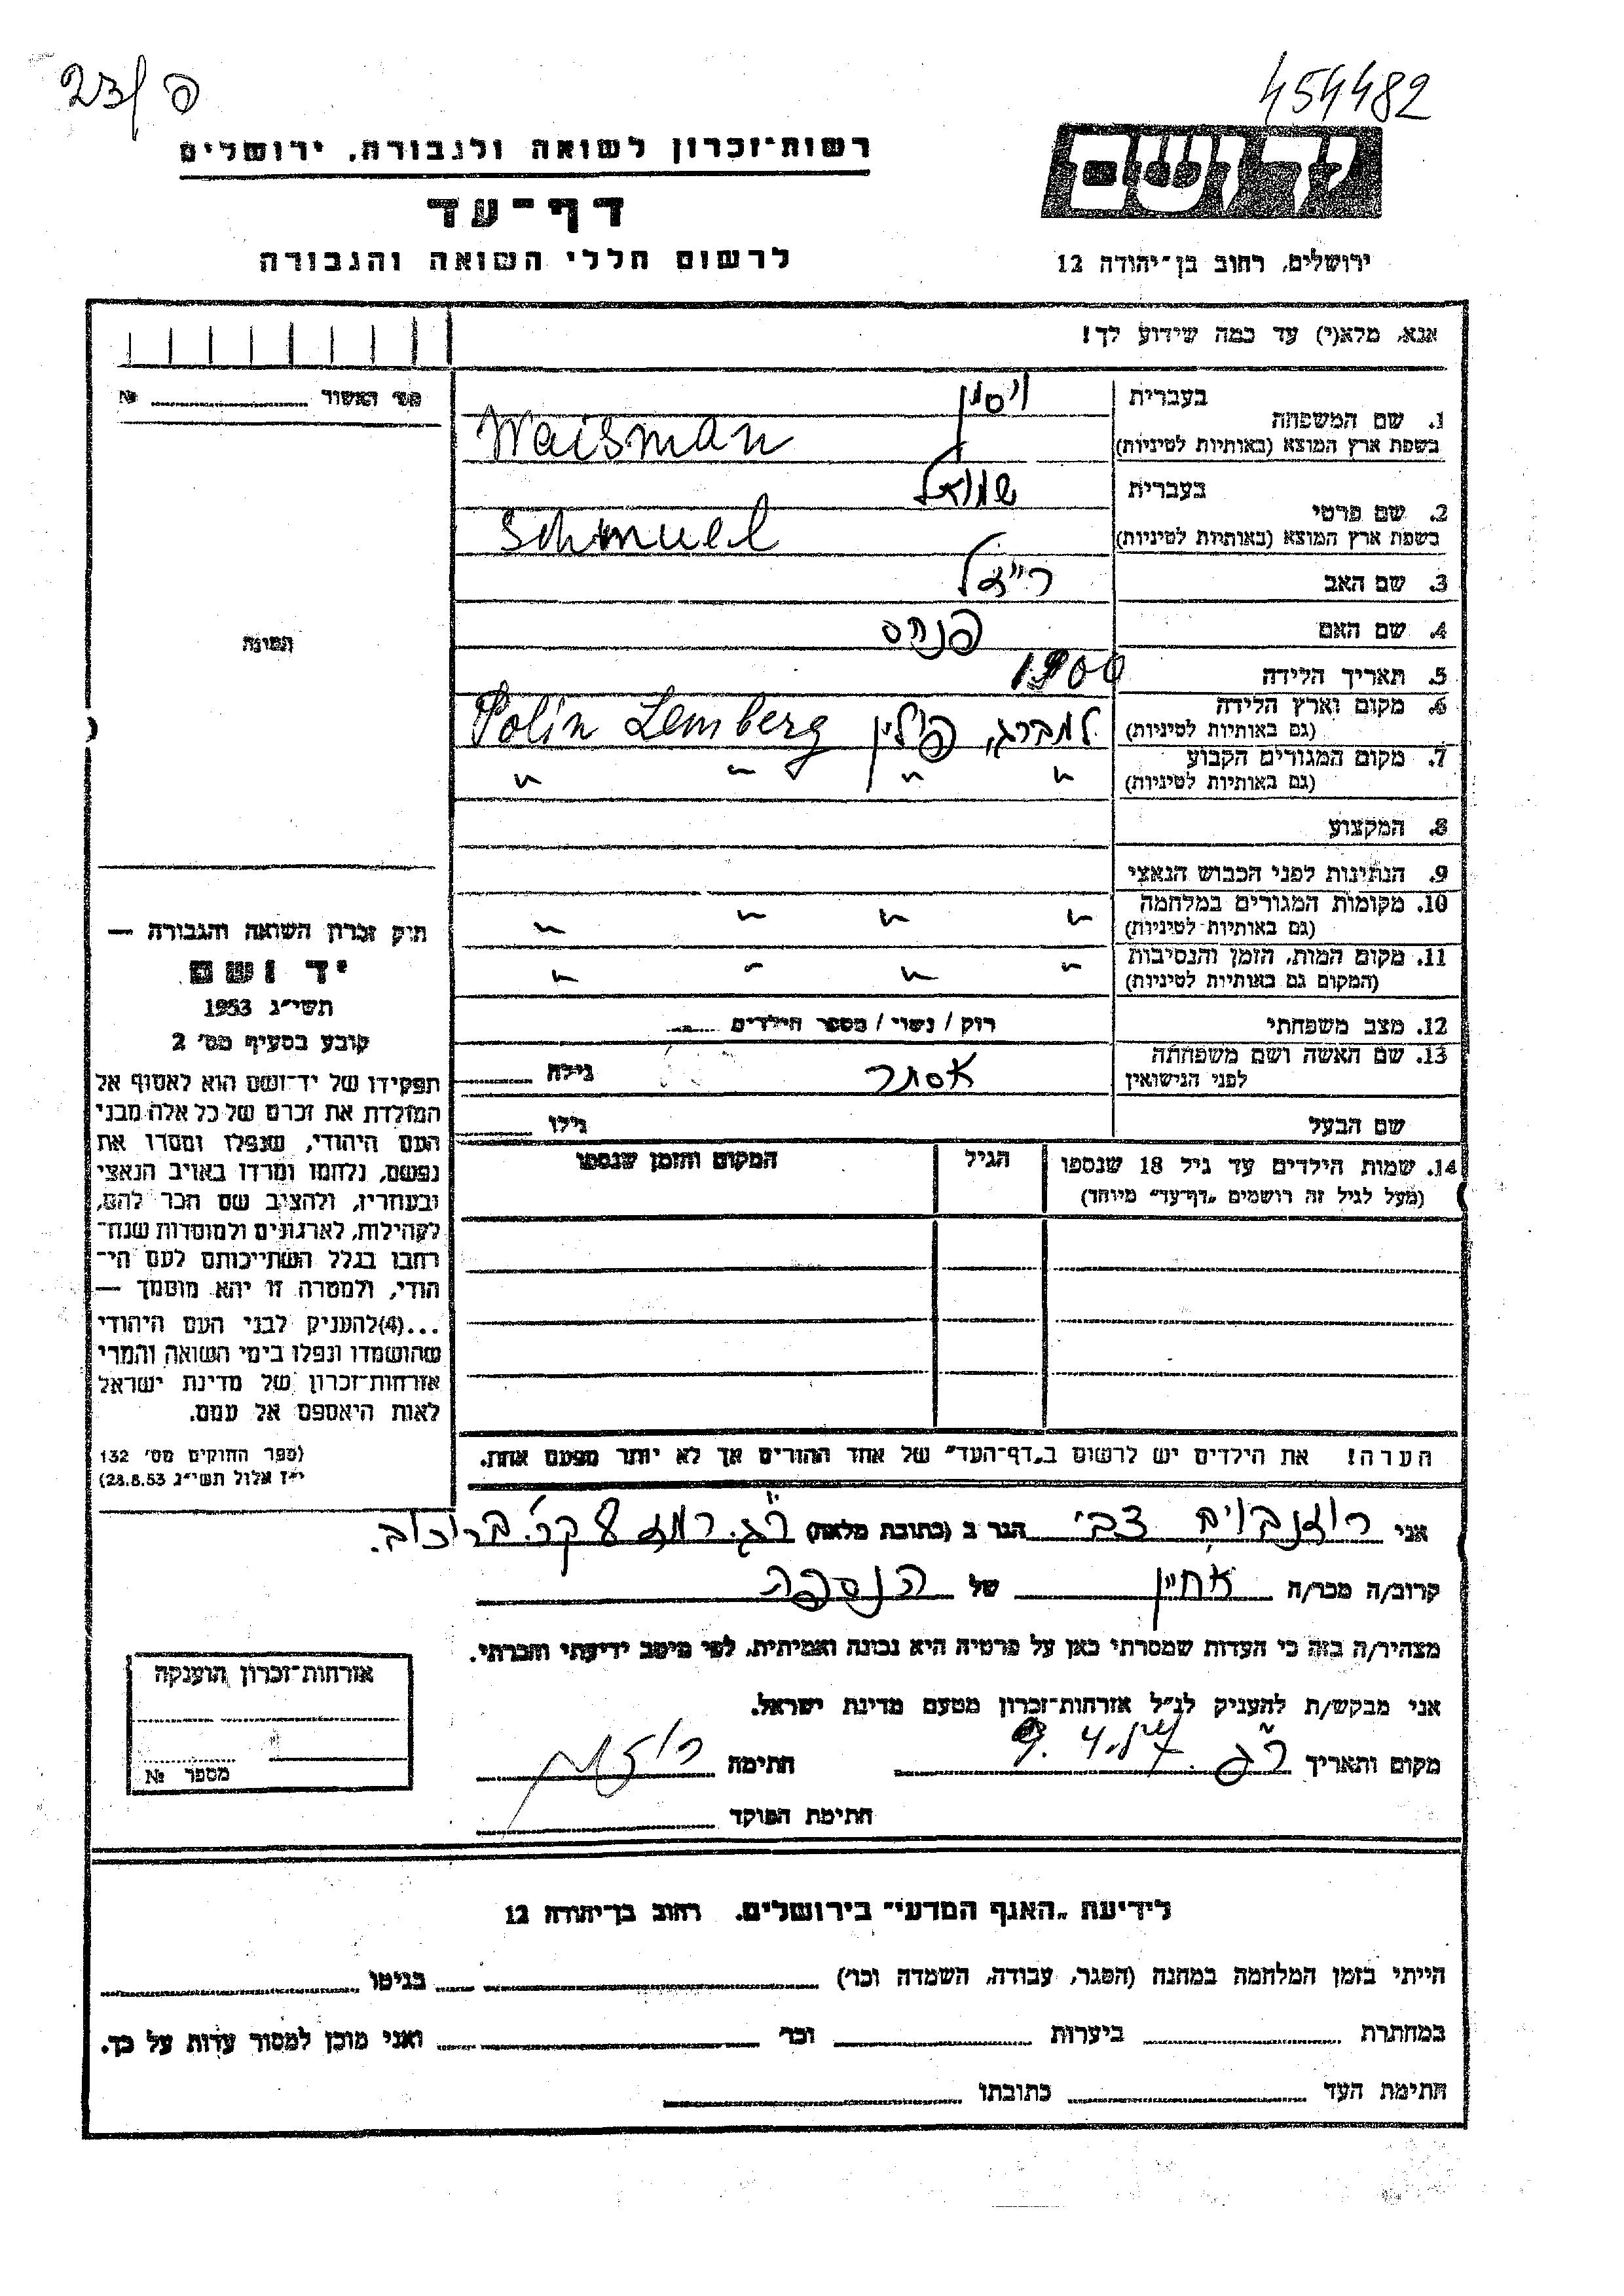 23/פ
454482
רשות־זכרון לשואה ולגבורה, ירושלים
דף־עד
לרשום חללי השואה והגבורה
יד ושם
ירושלים, רחוב בן־יהודה 12
אנא, מלא(י) עד כמה שידוע לך!
מס' האשור № 
1. שם המשפחה
בעברית ויסמן
בשפת ארץ המוצא (באותיות לטיניות) Waisman
2. שם פרטי
בעברית שמואל
בשפת ארץ המוצא (באותיות לטיניות) Schmuel
3. שם האב רייזל
4. שם האם פנחס
5. תאריך הלידה 1900
6. מקום וארץ הלידה למברג, פולין Polin Lemberg
(גם באותיות לטיניות)
7. מקום המגורים הקבוע
(גם באותיות לטיניות) " " " "
8. המקצוע
9. הנתינות לפני הכבוש הנאצי
10. מקומות המגורים במלחמה
(גם באותיות לטיניות) " " " "
11. מקום המות, הזמן והנסיבות
(המקום גם באותיות לטיניות) " " " "
12. מצב משפחתי רוק / נשוי / מספר הילדים
13. שם האשה ושם משפחתה
לפני הנישואין אסתר גילה
שם הבעל גילו
14. שמות הילדים עד גיל 18 שנספו הגיל המקום והזמן שנספו
(מעל לגיל זה רושמים "דף־עד" מיוחד)
תמונה
חוק זכרון השואה והגבורה —
יד ושם
תשי"ג 1953
קובע בסעיף מס' 2
תפקידו של יד־ושם הוא לאסוף אל
המולדת את זכרם של כל אלה מבני
העם היהודי, שנפלו ומסרו את
נפשם, נלחמו ומרדו באויב הנאצי
ובעוזריו, ולהציב שם וזכר להם,
לקהילות, לארגונים ולמוסדות שנח־
רבו בגלל השתייכותם לעם הי־
הודי, ולמטרה זו יהא מוסמך —
...(4)להעניק לבני העם היהודי
שהושמדו ונפלו בימי השואה והמרי
אזרחות־זכרון של מדינת ישראל
לאות היאספם אל עמם.
(ספר החוקים מס' 132
י"ז אלול תשי"ג 28.8.53)
הערה! את הילדים יש לרשום ב"דף־העד" של אחד ההורים אך לא יותר מפעם אחת.
אני רוזנבוים צבי הגר ב (כתובת מלאה) ר"ג. רמז 8 קר. בורוכוב.
קרוב/ה מכר/ה אחיין של הנספה
מצהיר/ה בזה כי העדות שמסרתי כאן על פרטיה היא נכונה ואמיתית, לפי מיטב ידיעתי והכרתי.
אני מבקש/ת להעניק לנ"ל אזרחות־זכרון מטעם מדינת ישראל.
מקום ותאריך ר"ג. חתימה
חתימת הפוקד
אזרחות־זכרון הוענקה
מספר №
לידיעת "האגף המדעי" בירושלים. רחוב בן־יהודה 12
הייתי בזמן המלחמה במחנה (הסגר, עבודה, השמדה וכו') בגיטו
במחתרת ביערות וכו' ואני מוכן למסור עדות על כך.
חתימת העד כתובתו